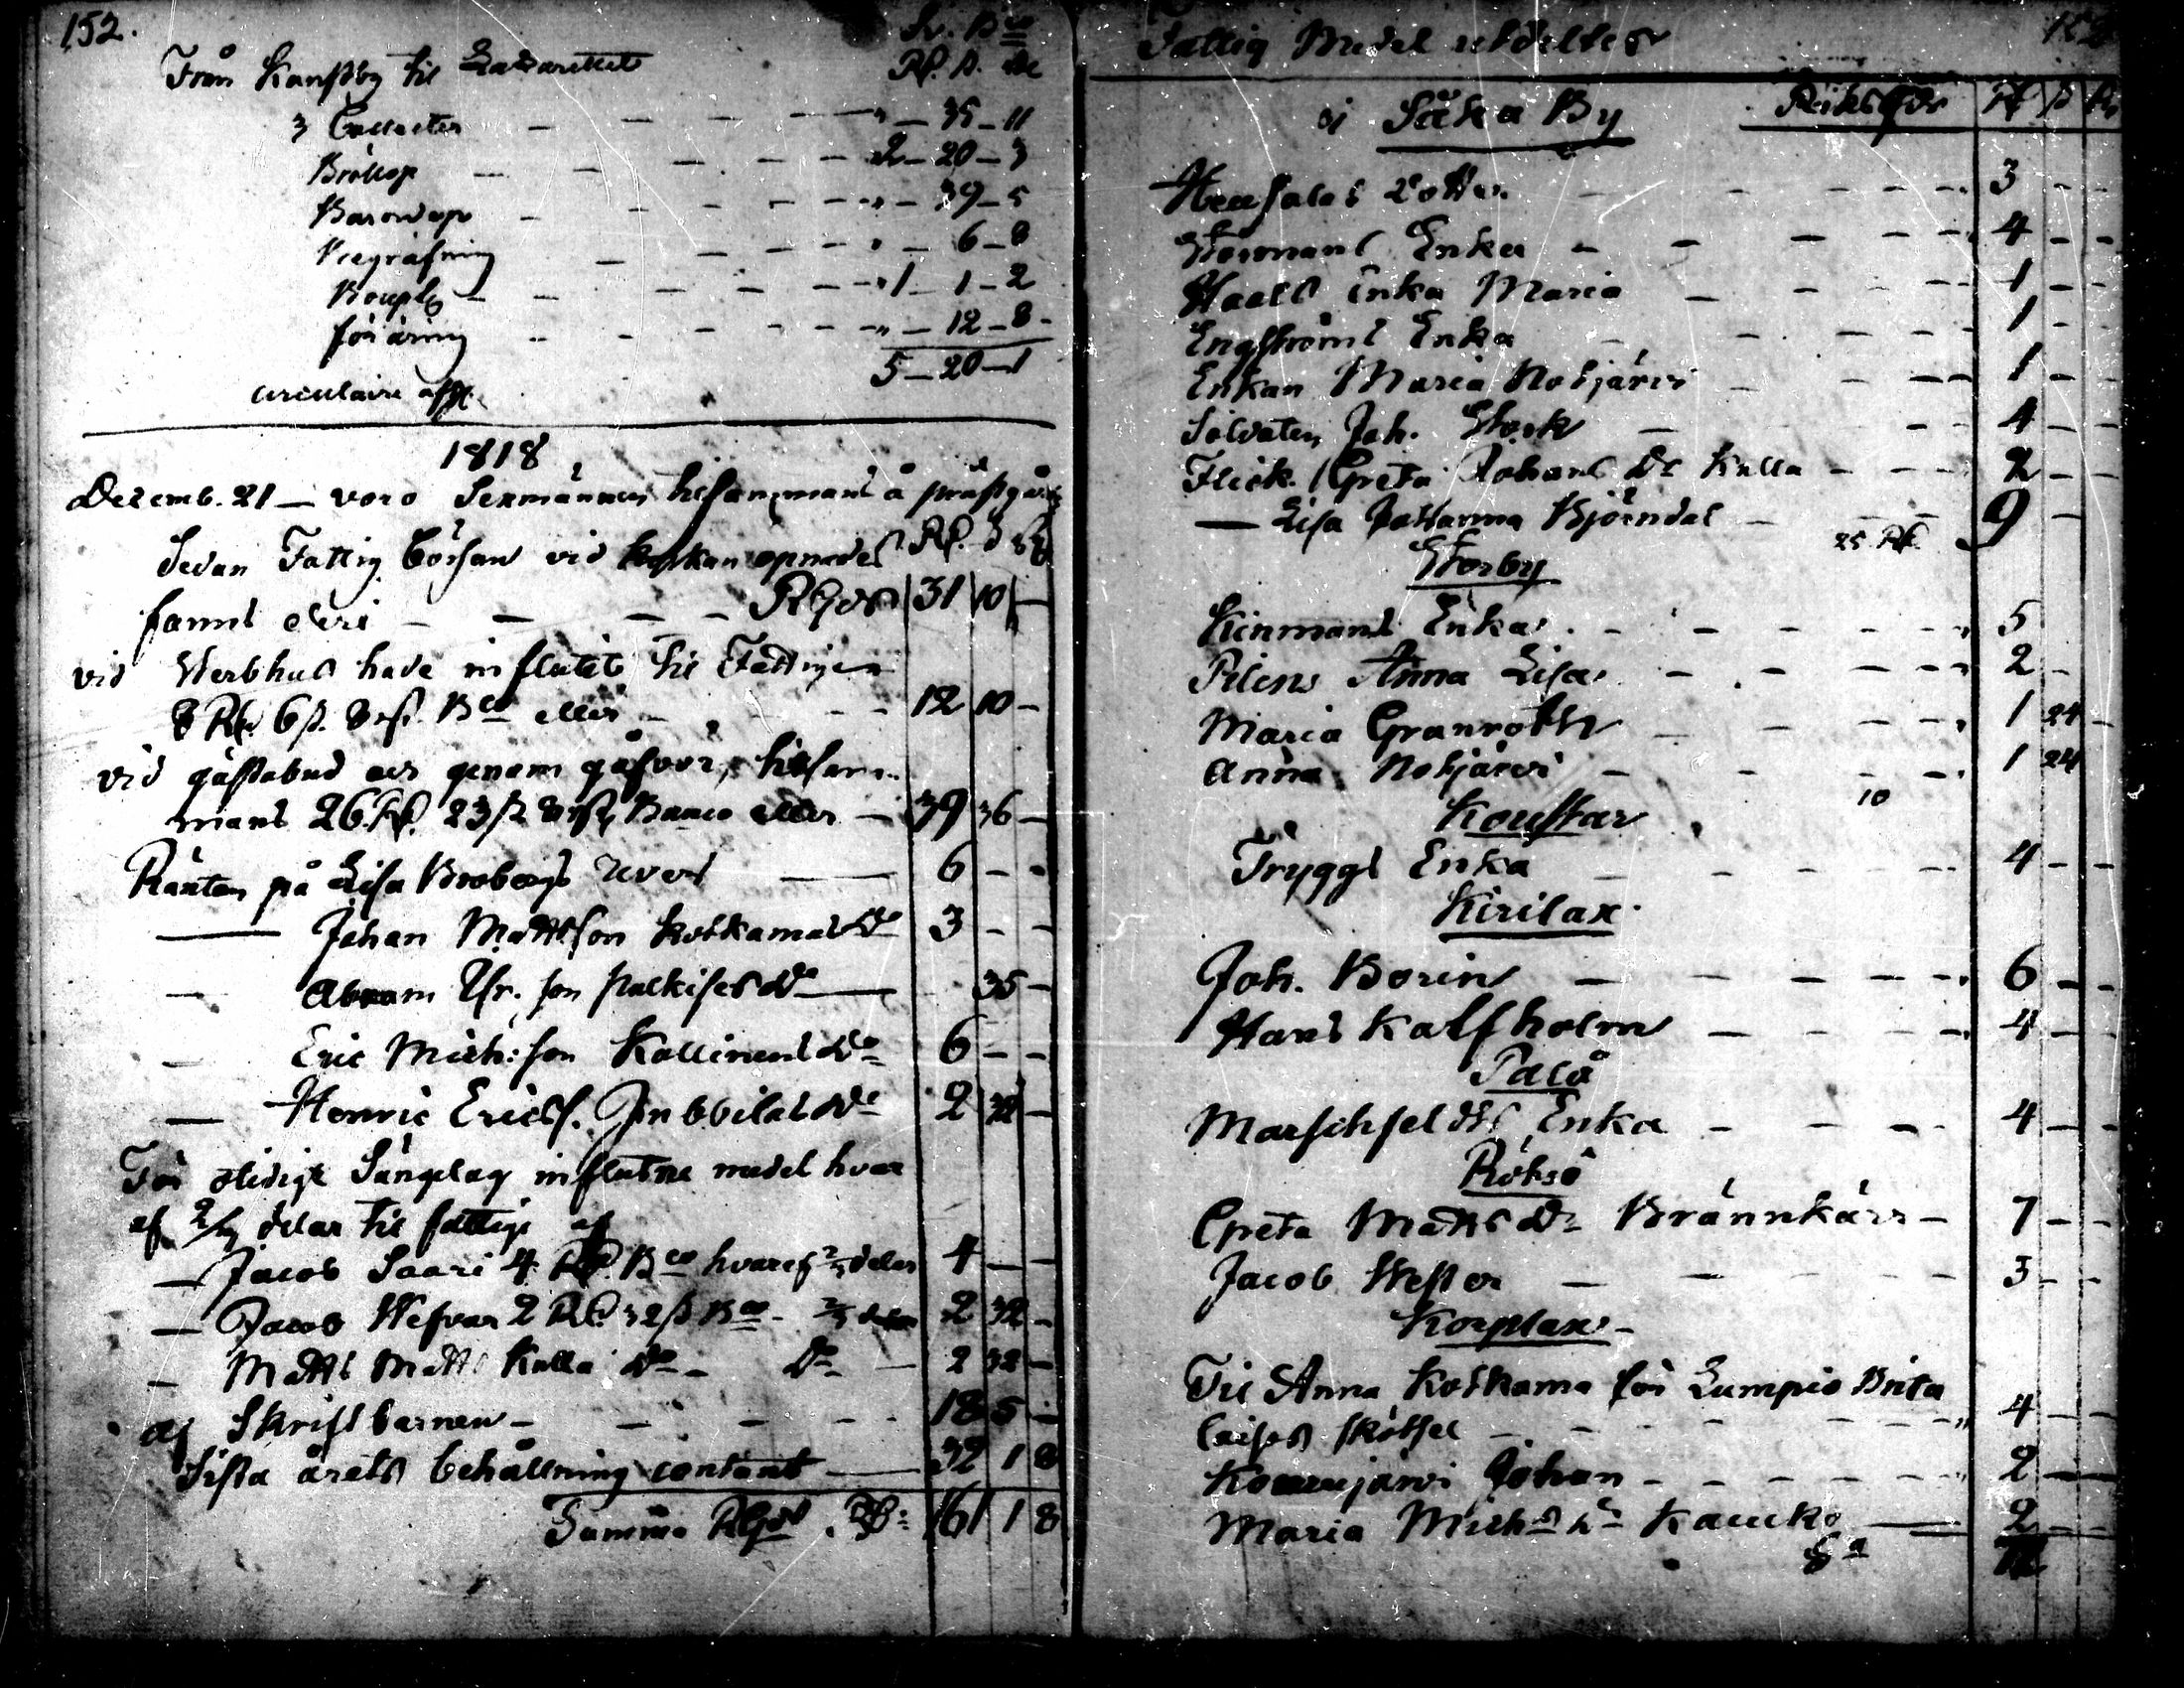 152.
Sv. Bco
Från Kansby til Lazarettet Rf. s. rst
3 Collecter - - - - " - 35 - 11
Bröllop - - - - 2 - 20 - 3
Barndop - - - - " - 39 - 5
- - - - " - 6 - 8
- - - - 1 - 1 - 2
föräring - - - - " - 12 - 8
5 - 20 - 1
circulaire afg.
1818
Decemb. 21 - voro Sexmännen tilsammans å
Sedan Fattig börsan vid kyrkan öpnades Rf. s
fanns deri - - - RGds 31 10 -
vid Sterbhus hade influtit til Fattiga
8 Rf. 6 s. 8 rst. Bco eller - - - 12 10 -
vid gästabud och genom gåfvor, tilsam-
mans 26 Rf. 23 s 8 rst Banco eller - 39 36 -
Räntan på Lisa Brobergs revers 6 - -
Johan Mattsson Kotkamas Do 3 - -
- Abram son Do 35 -
- Eric Mich:son Kallinens Do 6 - -
- Henric Ericss. Do 2 32 -
För olidigt Sängelag influtne medel hvar
af 2/3 delar til fattige af
- Jacob Saari 4 Rf. Bco hvaraf 2/3 delar 4 - -
- Jacob Wefvar 2 Rf. 32 s Bco - 2/3 delar 2 32 -
- Matts Matts Kulla Do - Do - 2 32 -
af Skriftbarnen - - - - 18 5 -
Sista årets behållning contant - 32 1 8
Summa RGds Rf: 161 1 8
Fattig Medel utdeltes
i Säka By Riksgds Rf s
dotter - - - 3 - -
Enka - - - 4 - -
Enka Maria - - - 1 - -
Engströms Enka - - - 1 -
Enkan Maria Nokjärvi - - - 1 - -
Soldaten Joh. Stork - - - 4 - -
Flick. Greta Johans Dr Kulla - - - 2 - -
- Lisa Catharina Björndal - - - 9 -
25 Rf.
Storby
Kinmans Enka - - - 5
Pilens Anna Lisa - - - 2 -
Maria Granroth - - - 1 24 -
Anna Nokjärvi - - - 1 24
10
Koustar
Tryggs Enka - - - 4 - -
Kirilax
Joh. Borin - - - 6 - -
Hans Kalfholm - - - 4 - -
Palå
Enka - - - 4 - -
Röksö
Greta Matts Dr Brännkärr - 7 - -
Jacob Wester - - - 3 - -
Korplax -
Til Anna Kotkama för Lumpio Brita
skötsel - - - 4 - -
Johan - - - 2 - -
Maria Michs Dr Kauko - 2 - -
Sa